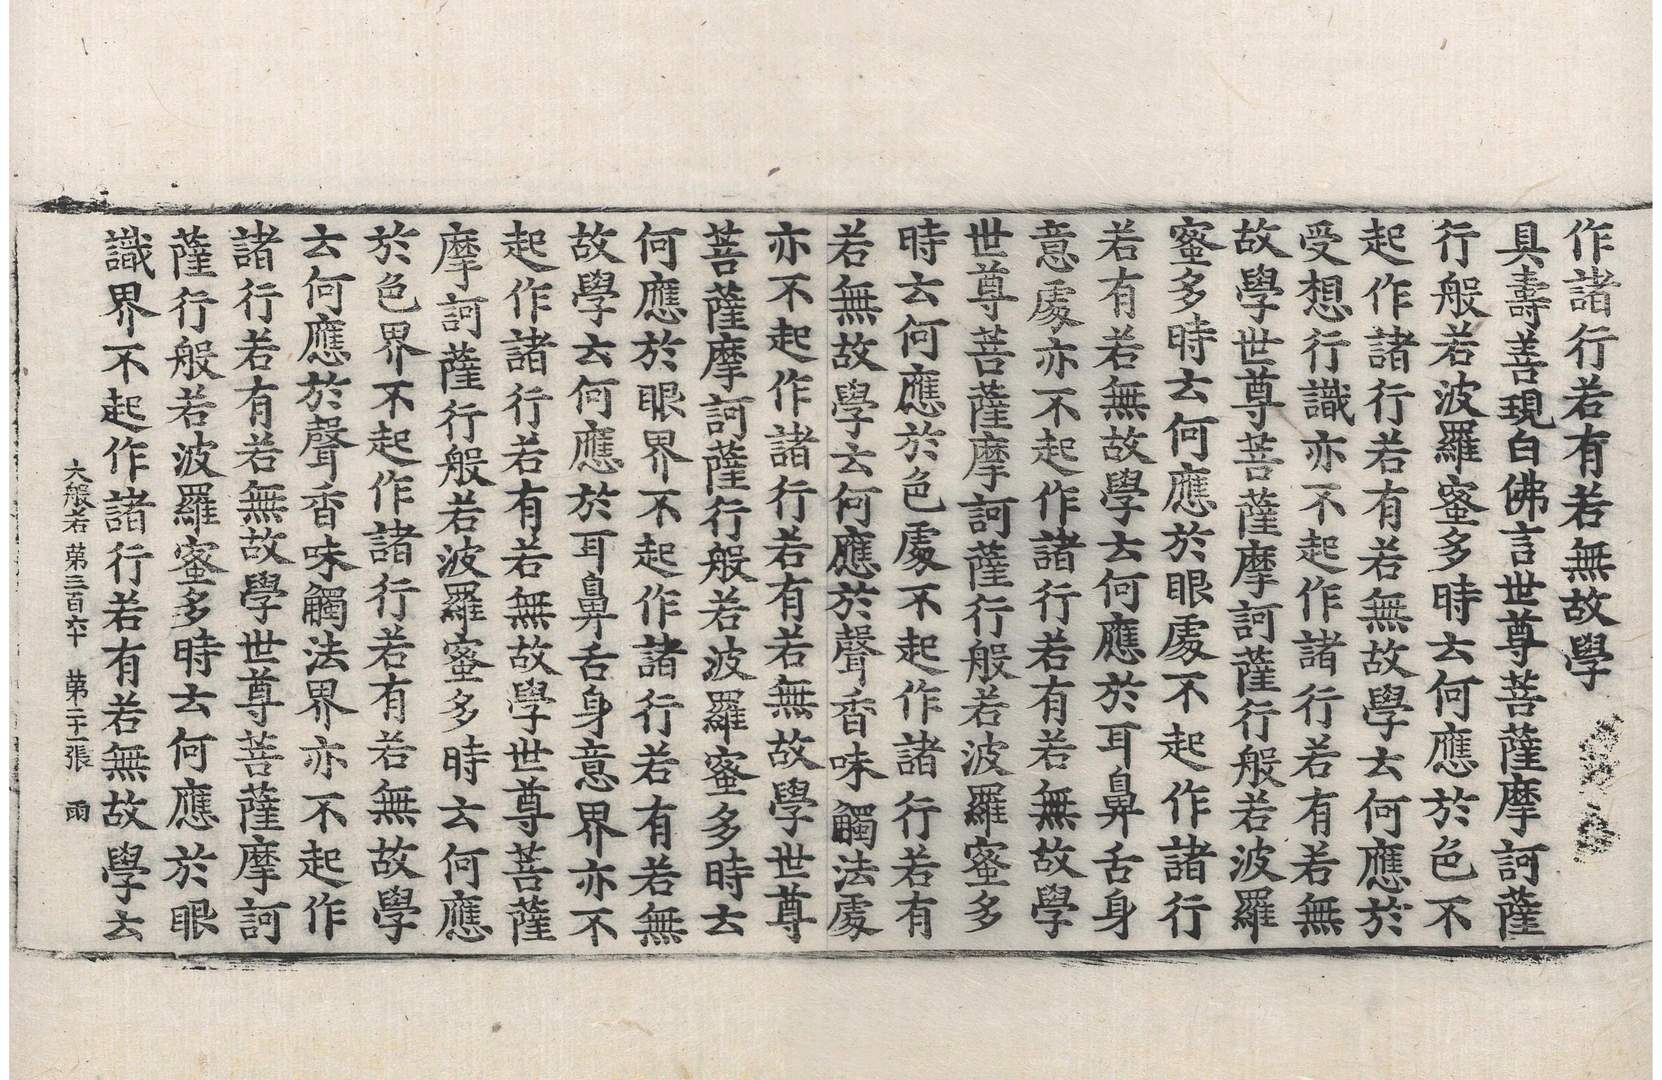 作諸行若有若無故學
具壽善現白佛言世尊菩薩摩訶薩
行般若波羅蜜多時云何應於色不
起作諸行若有若無故學云何應於
受想行識亦不起作諸行若有若無
故學世尊菩薩摩訶薩行般若波羅
蜜多時云何應於眼處不起作諸行
若有若無故學云何應於耳鼻舌身
意處亦不起作諸行若有若無故學
世尊菩薩摩訶薩行般若波羅蜜多
時云何應於色處不起作諸行若有
若無故學云何應於聲香味觸法處
亦不起作諸行若有若無故學世尊
菩薩摩訶薩行般若波羅蜜多時云
何應於眼界不起作諸行若有若無
故學云何應於耳鼻舌身意界亦不
起作諸行若有若無故學世尊菩薩
摩訶薩行般若波羅蜜多時云何應
於色界不起作諸行若有若無故學
云何應於聲香味觸法界亦不起作
諸行若有若無故學世尊菩薩摩訶
薩行般若波羅蜜多時云何應於眼
識界不起作諸行若有若無故學云
大般若第三百六十 第二十一張 雨